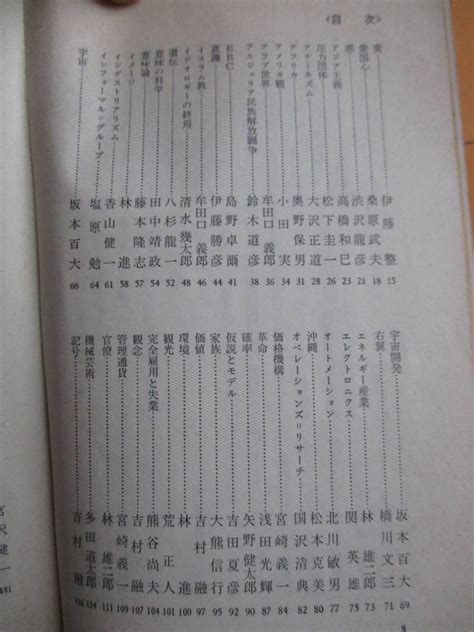 《目 次》
愛……伊藤 整 15
愛国心……桑原武夫 18
悪……渋沢龍彦 21
アジア主義……高橋和巳 23
圧力団体……松下圭一 26
アナーキズム……大沢正道 28
アフリカ……奥野保男 31
アメリカ観……小田 実 34
アラブ世界……牟田口義郎 36
アルジェリア民族解放闘争……鈴木道彦 38
EEC……島野卓爾 41
意識……伊藤勝彦 44
イスラム教……牟田口義郎 46
イデオロギーの終焉……清水幾太郎 48
遺伝……八杉龍一 52
意味の科学……田中靖政 54
意味論……藤本隆志 57
イメージ……林 進 58
インダストリアリズム……香山健一 61
インフォーマル=グループ……塩原 勉 64
宇宙……坂本百大 66
宇宙開発……坂本百大 69
右翼……橋川文三 71
エネルギー産業……林 雄二郎 73
エレクトロニクス……関 英雄 75
オートメーション……北川敏男 77
沖縄……松本克美 80
オペレーションズ=リサーチ……国沢清典 82
価格機構……宮崎義一 84
革命……浅田光輝 87
確率……矢野健太郎 90
仮説とモデル……吉田夏彦 92
家族……大熊信行 94
価値……吉村 融 97
環境……林 進 100
観光……荒 正人 101
完全雇用と失業……熊谷尚夫 104
観念……吉村 融 107
管理通貨……宮崎義一 109
官僚……林 雄二郎 111
機械芸術……多田道太郎 114
記号……吉村 融 116
8